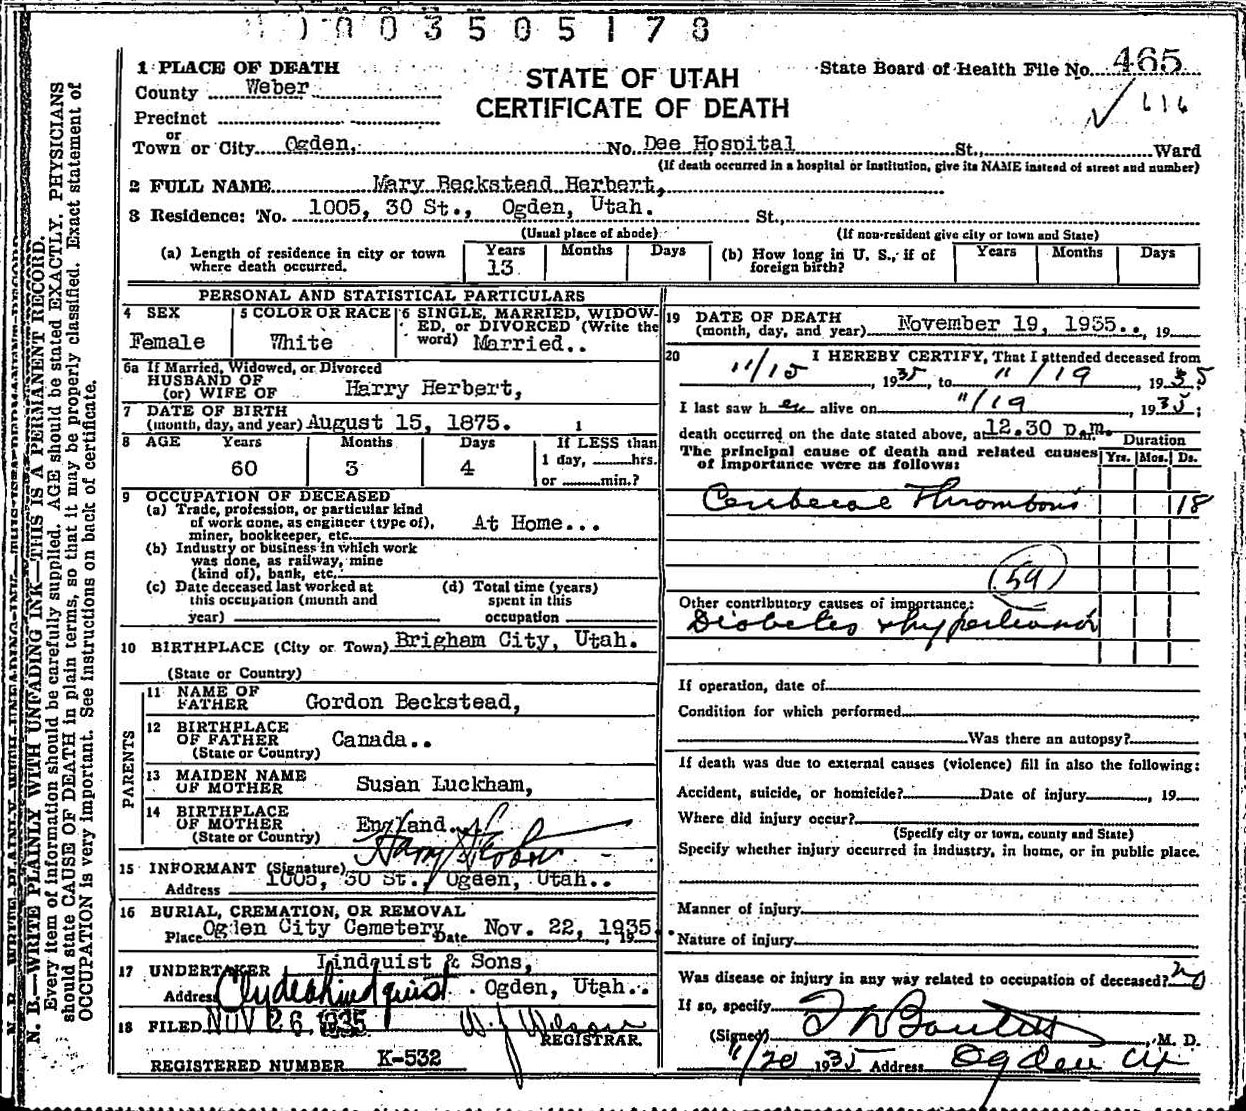 0003505178
1 PLACE OF DEATH
County Weber
Precinct
STATE OF UTAH
CERTIFICATE OF DEATH
State Board of Health File No. 465
✓ 616
or
Town or City Ogden, No. Dee Hospital St., Ward
(If death occurred in a hospital or institution, give its NAME instead of street and number)
2 FULL NAME Mary Beckstead Herbert,
3 Residence: No. 1005, 30 St., Ogden, Utah. St.,
(Usual place of abode) (If non-resident give city or town and State)
(a) Length of residence in city or town where death occurred. Years 13 Months Days
(b) How long in U. S., if of foreign birth? Years Months Days
PERSONAL AND STATISTICAL PARTICULARS
4 SEX
Female
5 COLOR OR RACE
White
6 SINGLE, MARRIED, WIDOWED, or DIVORCED (Write the word) Married..
6a If Married, Widowed, or Divorced
HUSBAND OF
(or) WIFE OF Harry Herbert,
7 DATE OF BIRTH
(month, day, and year) August 15, 1875.
8 AGE Years Months Days If LESS than
60 3 4 1 day, hrs.
or min.?
9 OCCUPATION OF DECEASED
(a) Trade, profession, or particular kind
of work done, as engineer (type of),
miner, bookkeeper, etc. At Home...
(b) Industry or business in which work
was done, as railway, mine
(kind of), bank, etc.
(c) Date deceased last worked at
this occupation (month and
year)
(d) Total time (years)
spent in this
occupation
10 BIRTHPLACE (City or Town) Brigham City, Utah.
(State or Country)
PARENTS
11 NAME OF
FATHER Gordon Beckstead,
12 BIRTHPLACE
OF FATHER Canada..
(State or Country)
13 MAIDEN NAME
OF MOTHER Susan Luckham,
14 BIRTHPLACE
OF MOTHER England..
(State or Country)
Harry Herbert
15 INFORMANT (Signature)
Address 1005, 30 St., Ogden, Utah..
16 BURIAL, CREMATION, OR REMOVAL
Place Ogden City Cemetery Date Nov. 22, 1935. , 19
17 UNDERTAKER Lindquist & Sons,
Address Clyde Lindquist . Ogden, Utah..
18 FILED NOV 26 1935 W. J. Wilson
REGISTRAR.
REGISTERED NUMBER K-532
19 DATE OF DEATH
(month, day, and year) November 19, 1935.., 19
20 I HEREBY CERTIFY, That I attended deceased from
11/15, 1935, to 11/19, 1935
I last saw her alive on 11/19, 1935;
death occurred on the date stated above, at 12.30 p.m.
The principal cause of death and related causes
of importance were as follows:
Duration
Yrs. Mos. Ds.
Cerebral Thrombosis 18
(59)
Other contributory causes of importance:
Diabetes & hypertension
If operation, date of
Condition for which performed
Was there an autopsy?
If death was due to external causes (violence) fill in also the following:
Accident, suicide, or homicide? Date of injury , 19
Where did injury occur?
(Specify city or town, county and State)
Specify whether injury occurred in industry, in home, or in public place.
Manner of injury
Nature of injury
Was disease or injury in any way related to occupation of deceased? no
If so, specify
(Signed) , M. D.
11/20 1935 Address Ogden Ut
N. B.—WRITE PLAINLY WITH UNFADING INK—THIS IS A PERMANENT RECORD.
Every item of information should be carefully supplied. AGE should be stated EXACTLY. PHYSICIANS
should state CAUSE OF DEATH in plain terms, so that it may be properly classified. Exact statement of
OCCUPATION is very important. See instructions on back of certificate.